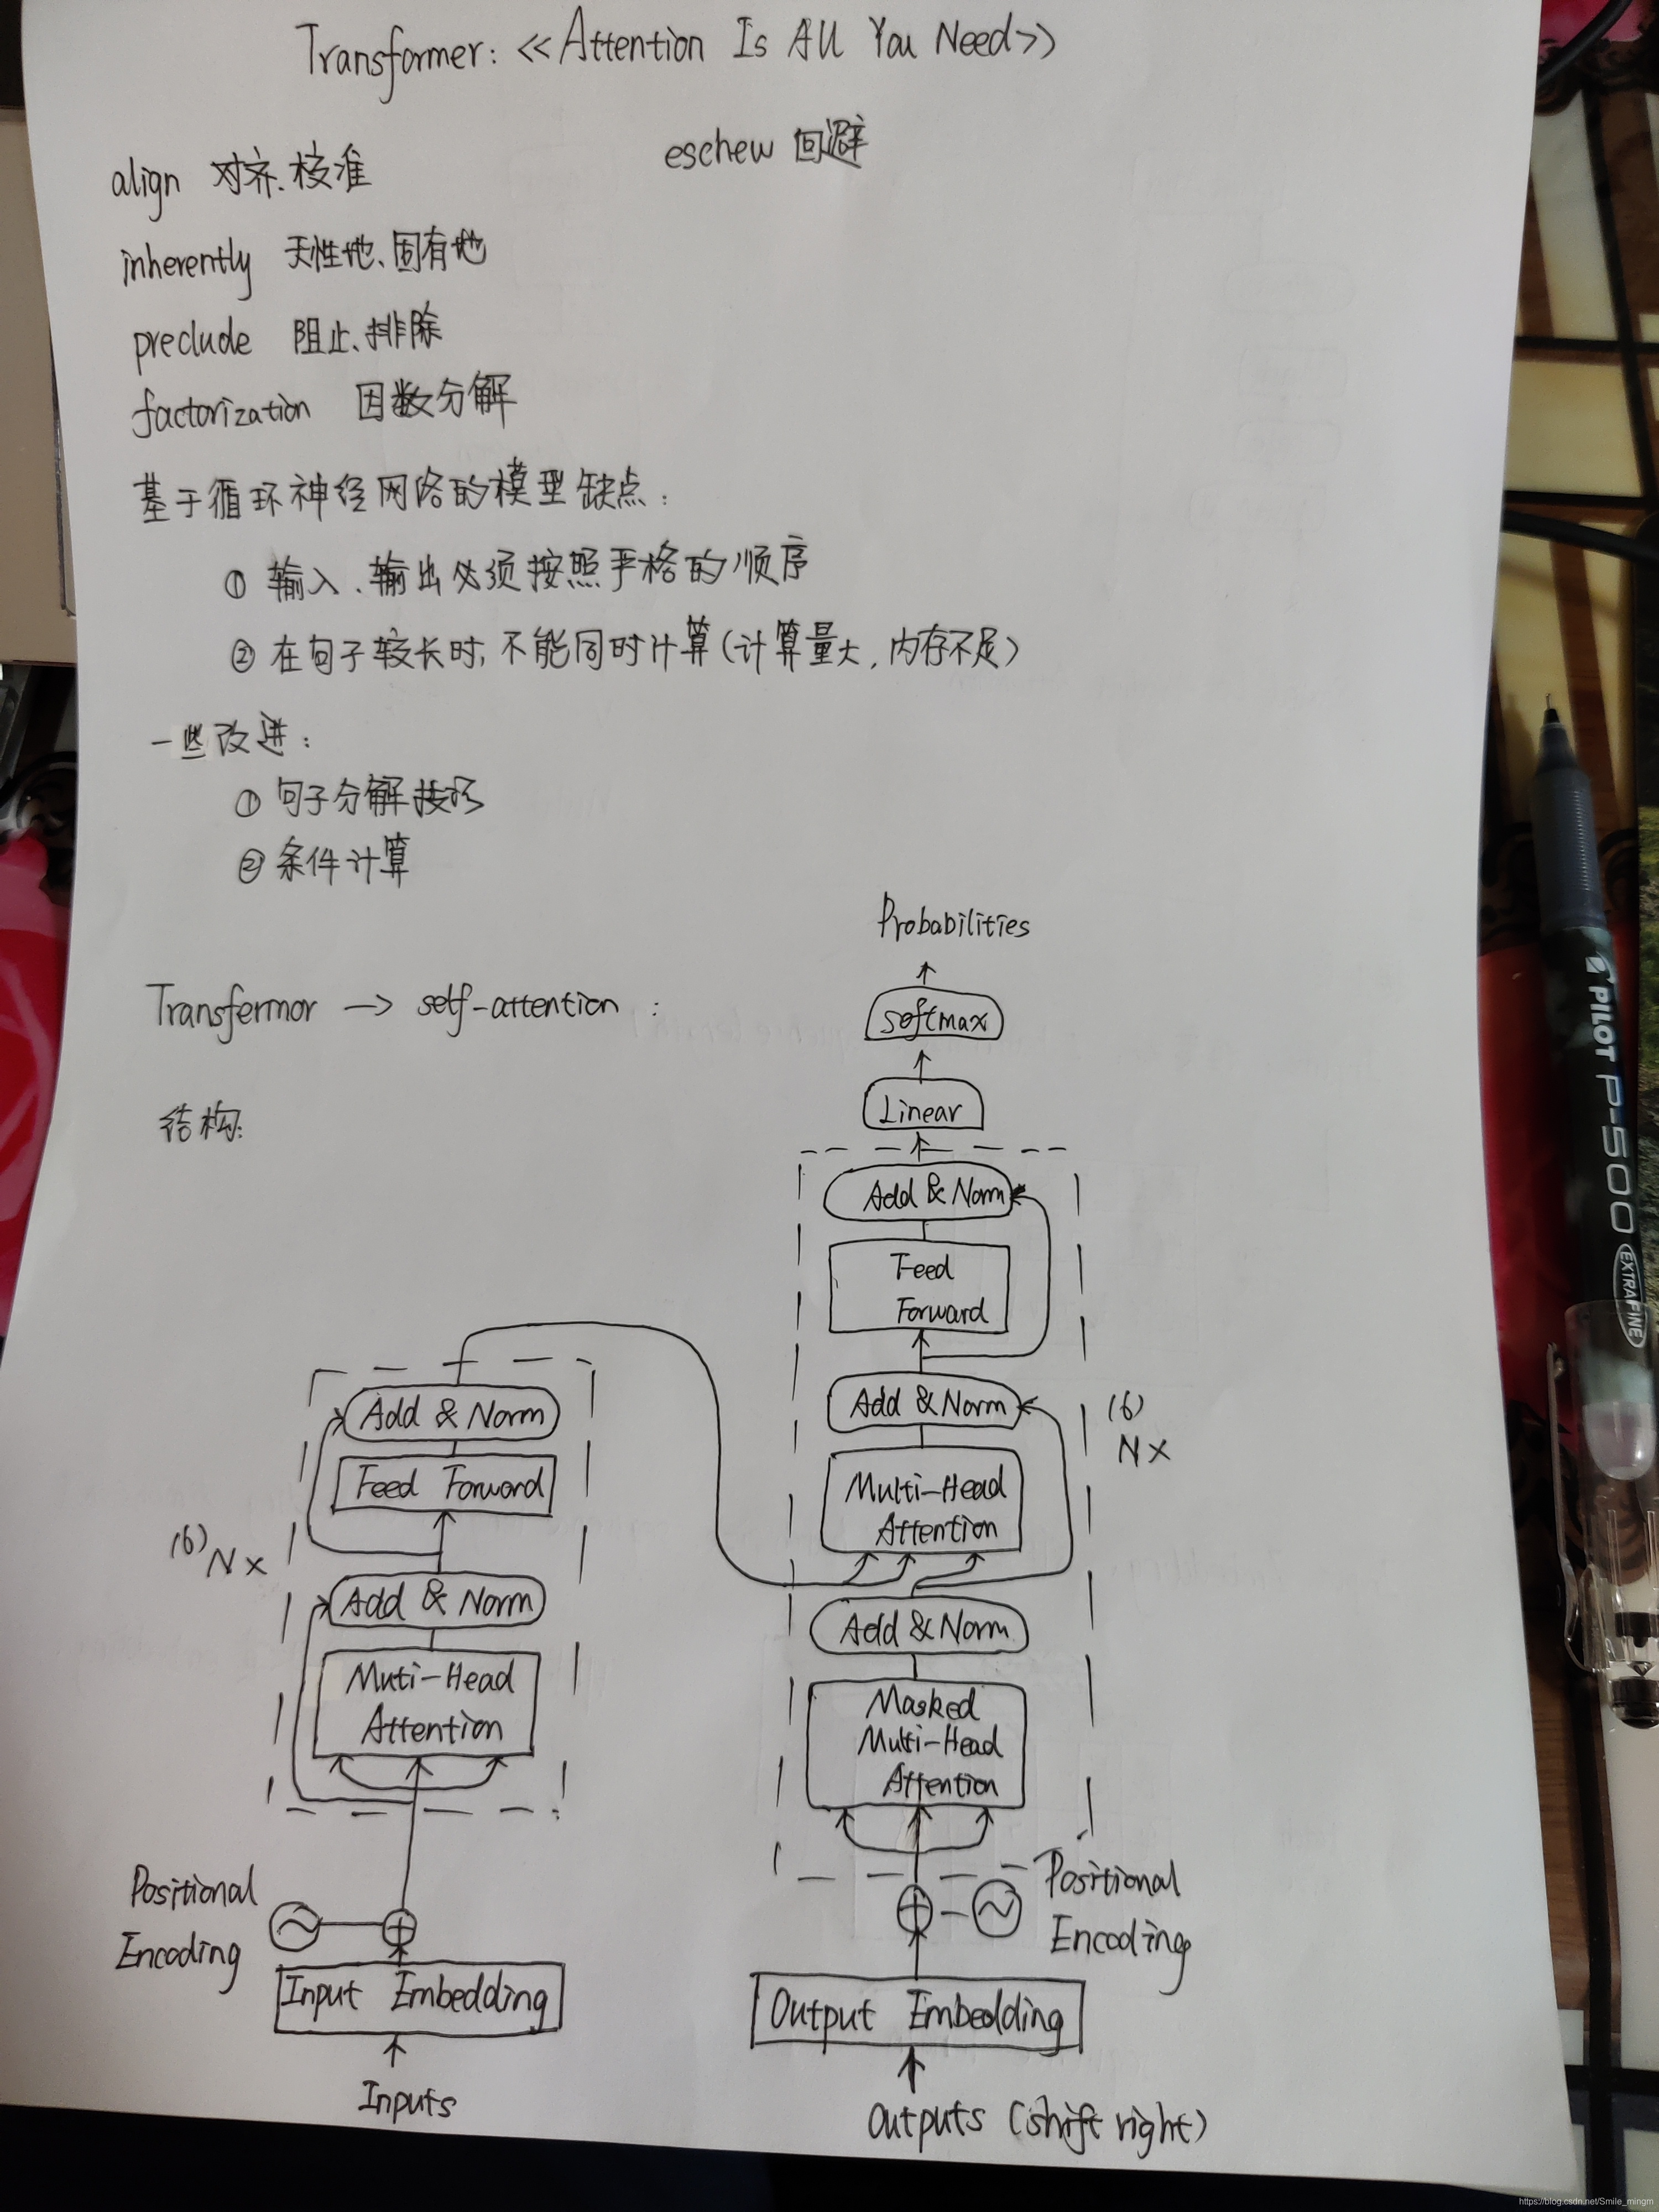 Transformer: <<Attention Is All You Need>>
align 对齐、校准
eschew 回避
inherently 天性地、固有地
preclude 阻止、排除
factorization 因数分解
基于循环神经网络的模型缺点:
① 输入、输出必须按照严格的顺序
② 在句子较长时, 不能同时计算(计算量大, 内存不足)
一些改进:
① 句子分解技巧
② 条件计算
Transfermor → self-attention :
结构:
Probabilities
Softmax
Linear
Add & Norm
Feed
Forward
Add & Norm
(6)
N×
Multi-Head
Attention
Add & Norm
Masked
Multi-Head
Attention
Positional
Encoding
Output Embedding
Outputs (shift right)
Add & Norm
Feed Forward
(6) N×
Add & Norm
Muti-Head
Attention
Positional
Encoding
Input Embedding
Inputs
PILOT P-500 EXTRAFINE
https://blog.csdn.net/Smile_mingm